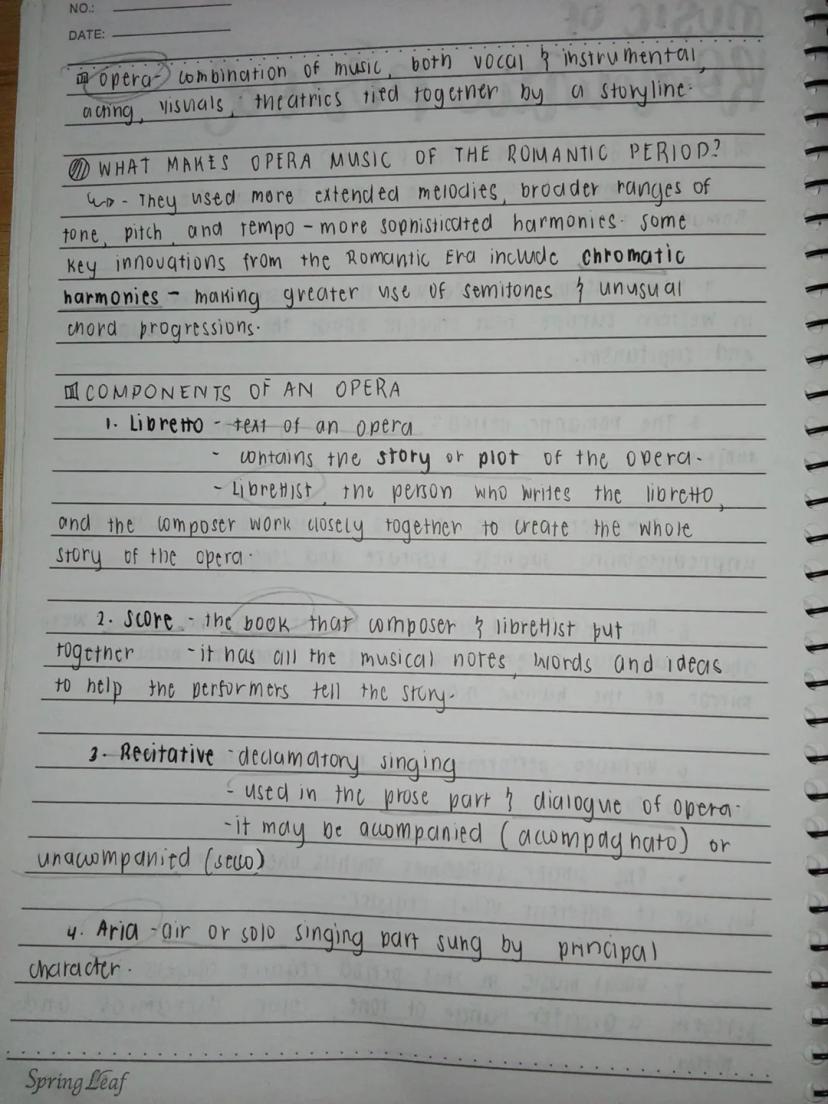 NO.:
DATE:
Opera - combination of music, both vocal & instrumental,
acting, visuals, theatrics tied together by a storyline.
WHAT MAKES OPERA MUSIC OF THE ROMANTIC PERIOD?
↳ - They used more extended melodies, broader ranges of
tone, pitch, and tempo - more sophisticated harmonies. some
key innovations from the Romantic Era include chromatic
harmonies - making greater use of semitones & unusual
chord progressions.
COMPONENTS OF AN OPERA
1. Libretto - text of an opera
- contains the story or plot of the opera.
- Librettist, the person who writes the libretto,
and the composer work closely together to create the whole
story of the opera.
2. Score - the book that composer & librettist put
together - it has all the musical notes, words and ideas
to help the performers tell the story.
3. Recitative - declamatory singing
- used in the prose part & dialogue of opera.
- it may be accompanied (accompagnato) or
unaccompanied (secco)
4. Aria - air or solo singing part sung by principal
character.
Spring Leaf